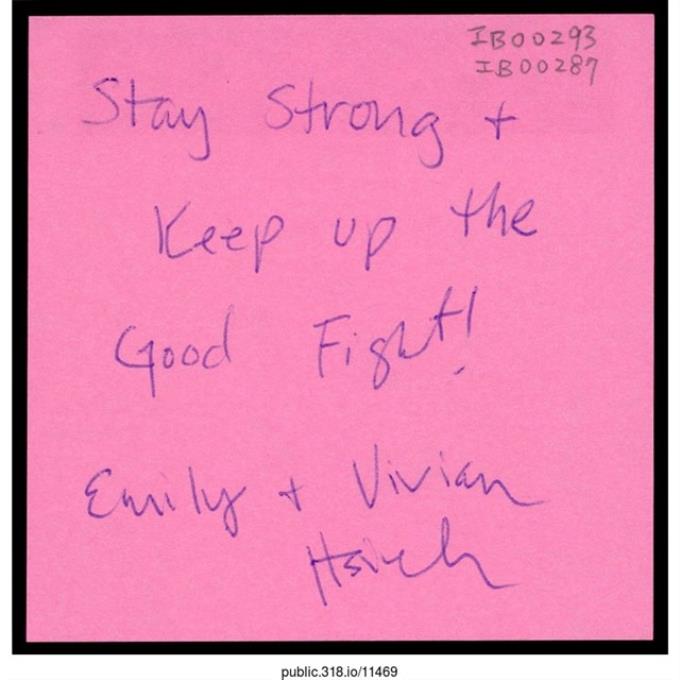 IB00293
IB00287
Stay Strong +
Keep up the
Good Fight!
Emily + Vivian
Hsieh
public.318.io/11469